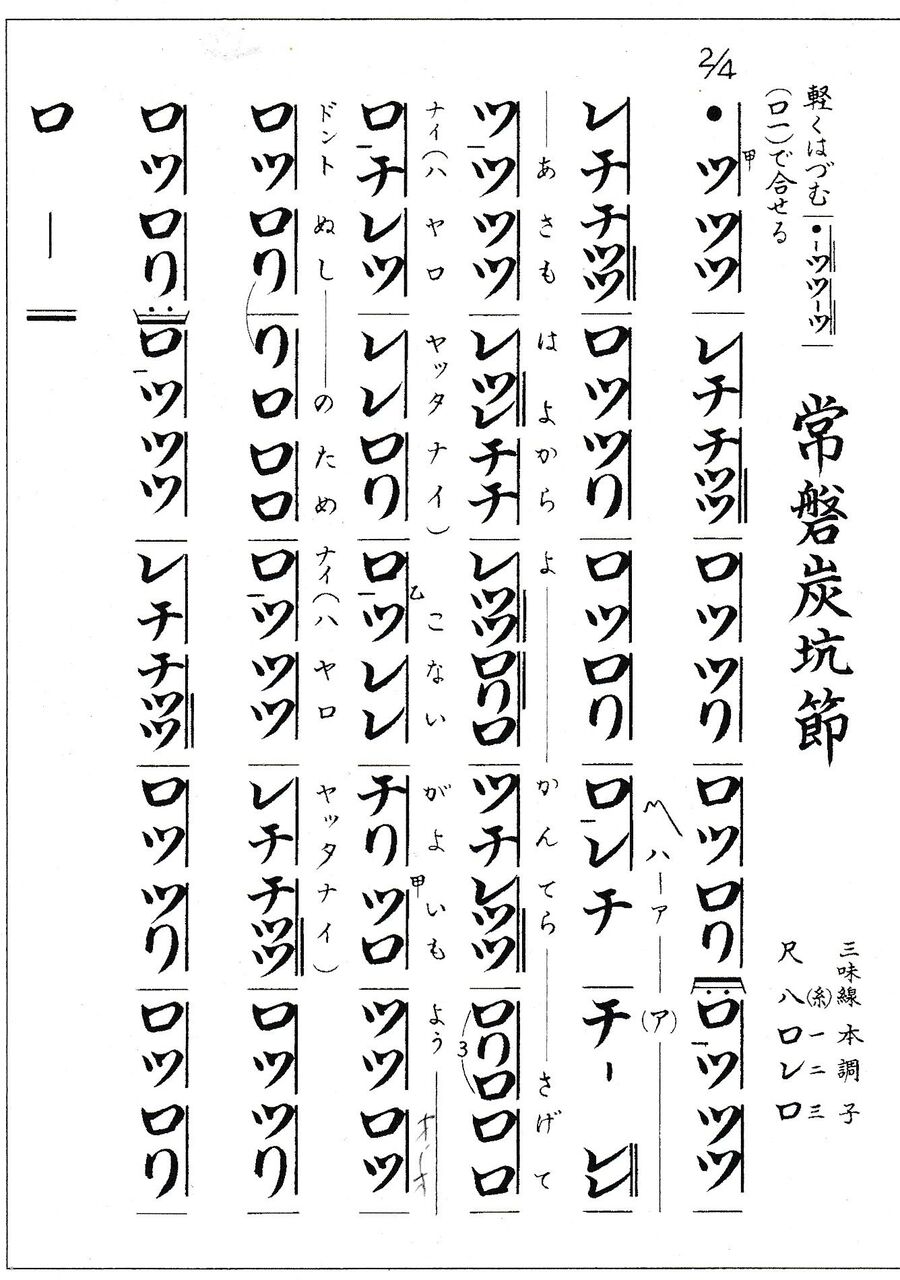 常磐炭坑節
軽くはづむ ●ーツツーツ
(ロ一)で合せる
三味線 本調子
(糸)一二三
尺八ロレロ
2/4
甲
●ツツツレチチツツロツツリロツロリロツツツ
ハーア(ア)
レチチツツロツツリロツロリロレチチーレ
あさもはよからよ かんてらさげて
ツツツツレツレチチレツツロリロツチレツツロリロロロ
3
ナイ(ハヤロヤッタナイ)こないがよいもよう
乙
甲
ロチレツレレロリロツレレチリツロツツロツ
ドントぬしのためナイ(ハヤロヤッタナイ)
ロツロリリロロロロツツツレチチツツロツツリ
ロツロリロツツツレチチツツロツツリロツロリ
ロー